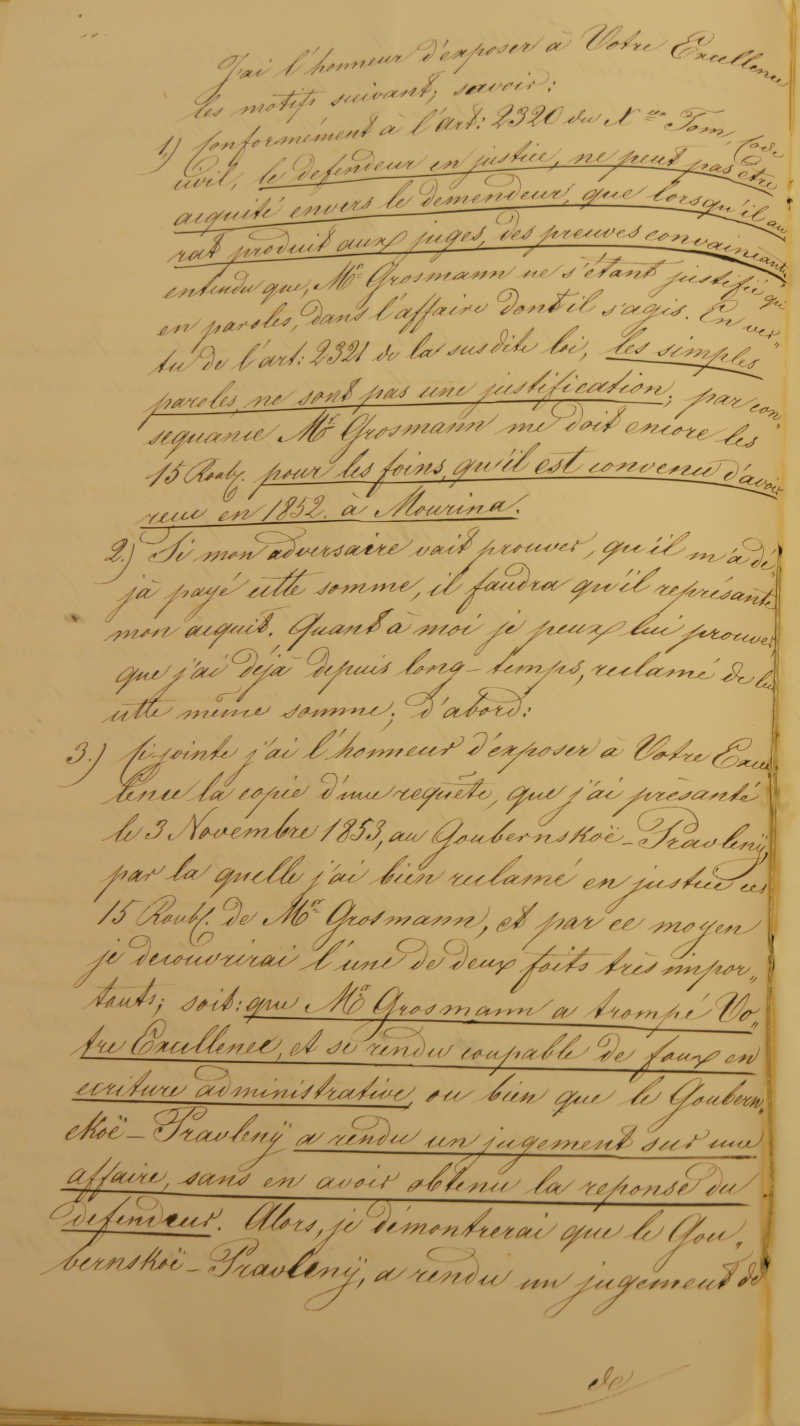 J'ai l'honneur d'exposer à Votre Excellence
les motifs suivant; savoir:
1.) Conformément à l'art: 2320 du N Tom, Code
civil, le defendeur en justice, ne peut pas être
acquité envers le demendeur, que lorsqu'il au
rat produit aux juges, des preuves convaincante
entendu que, Mr Grosmann ne s'étant justifié qu
en paroles, dans l'affaire dont il s'agis. En ver-
tu de l'art: 2321 de la susdite loi, les simples
paroles, ne sont pas une justification; par con-
sequance Mr Grosmann me doit encore les
15 Roub. pour les foins, qu'il est convenu d'avoir
reçu en 1852. à Mourina.
2.) Si mon adversaire vait prouver, qu'il m'a dé,
jà payé cette somme, il faudra qu'il représante
mon acquit. Quant à moi je peux lui prouver,
que j'ai déjà depuis long-temps, reclamé de lui
cette même somme; d'abord:
3.) Ci-jointe j'ai l'honneur d'exposer à Votre Excel
lence la copie d'une requête, que j'ai présanté
le 3 Novembre 1853, au Goubernskoë-Pravlenÿ,
par la quelle j'ai bien reclamé en justice ces
15 Roub. de Mr Grosmann, et par ce moyen
je decouvrirai l'une de deux foits très impor„
touts; soit: que Mr Grosmann a trompé Vo„
tre Excellence, et se rendu coupable de foux en
ecriture administrative, ou bien que le Goubern„
skoë-Pravlenÿ a rendu un jugement sur une
affaire, sans en avoir obtenu la reponse du
defendeur. Alors, je démontrerai que le Gou„
bernskoë-Pravlenÿ, a rendu un jugement de
de